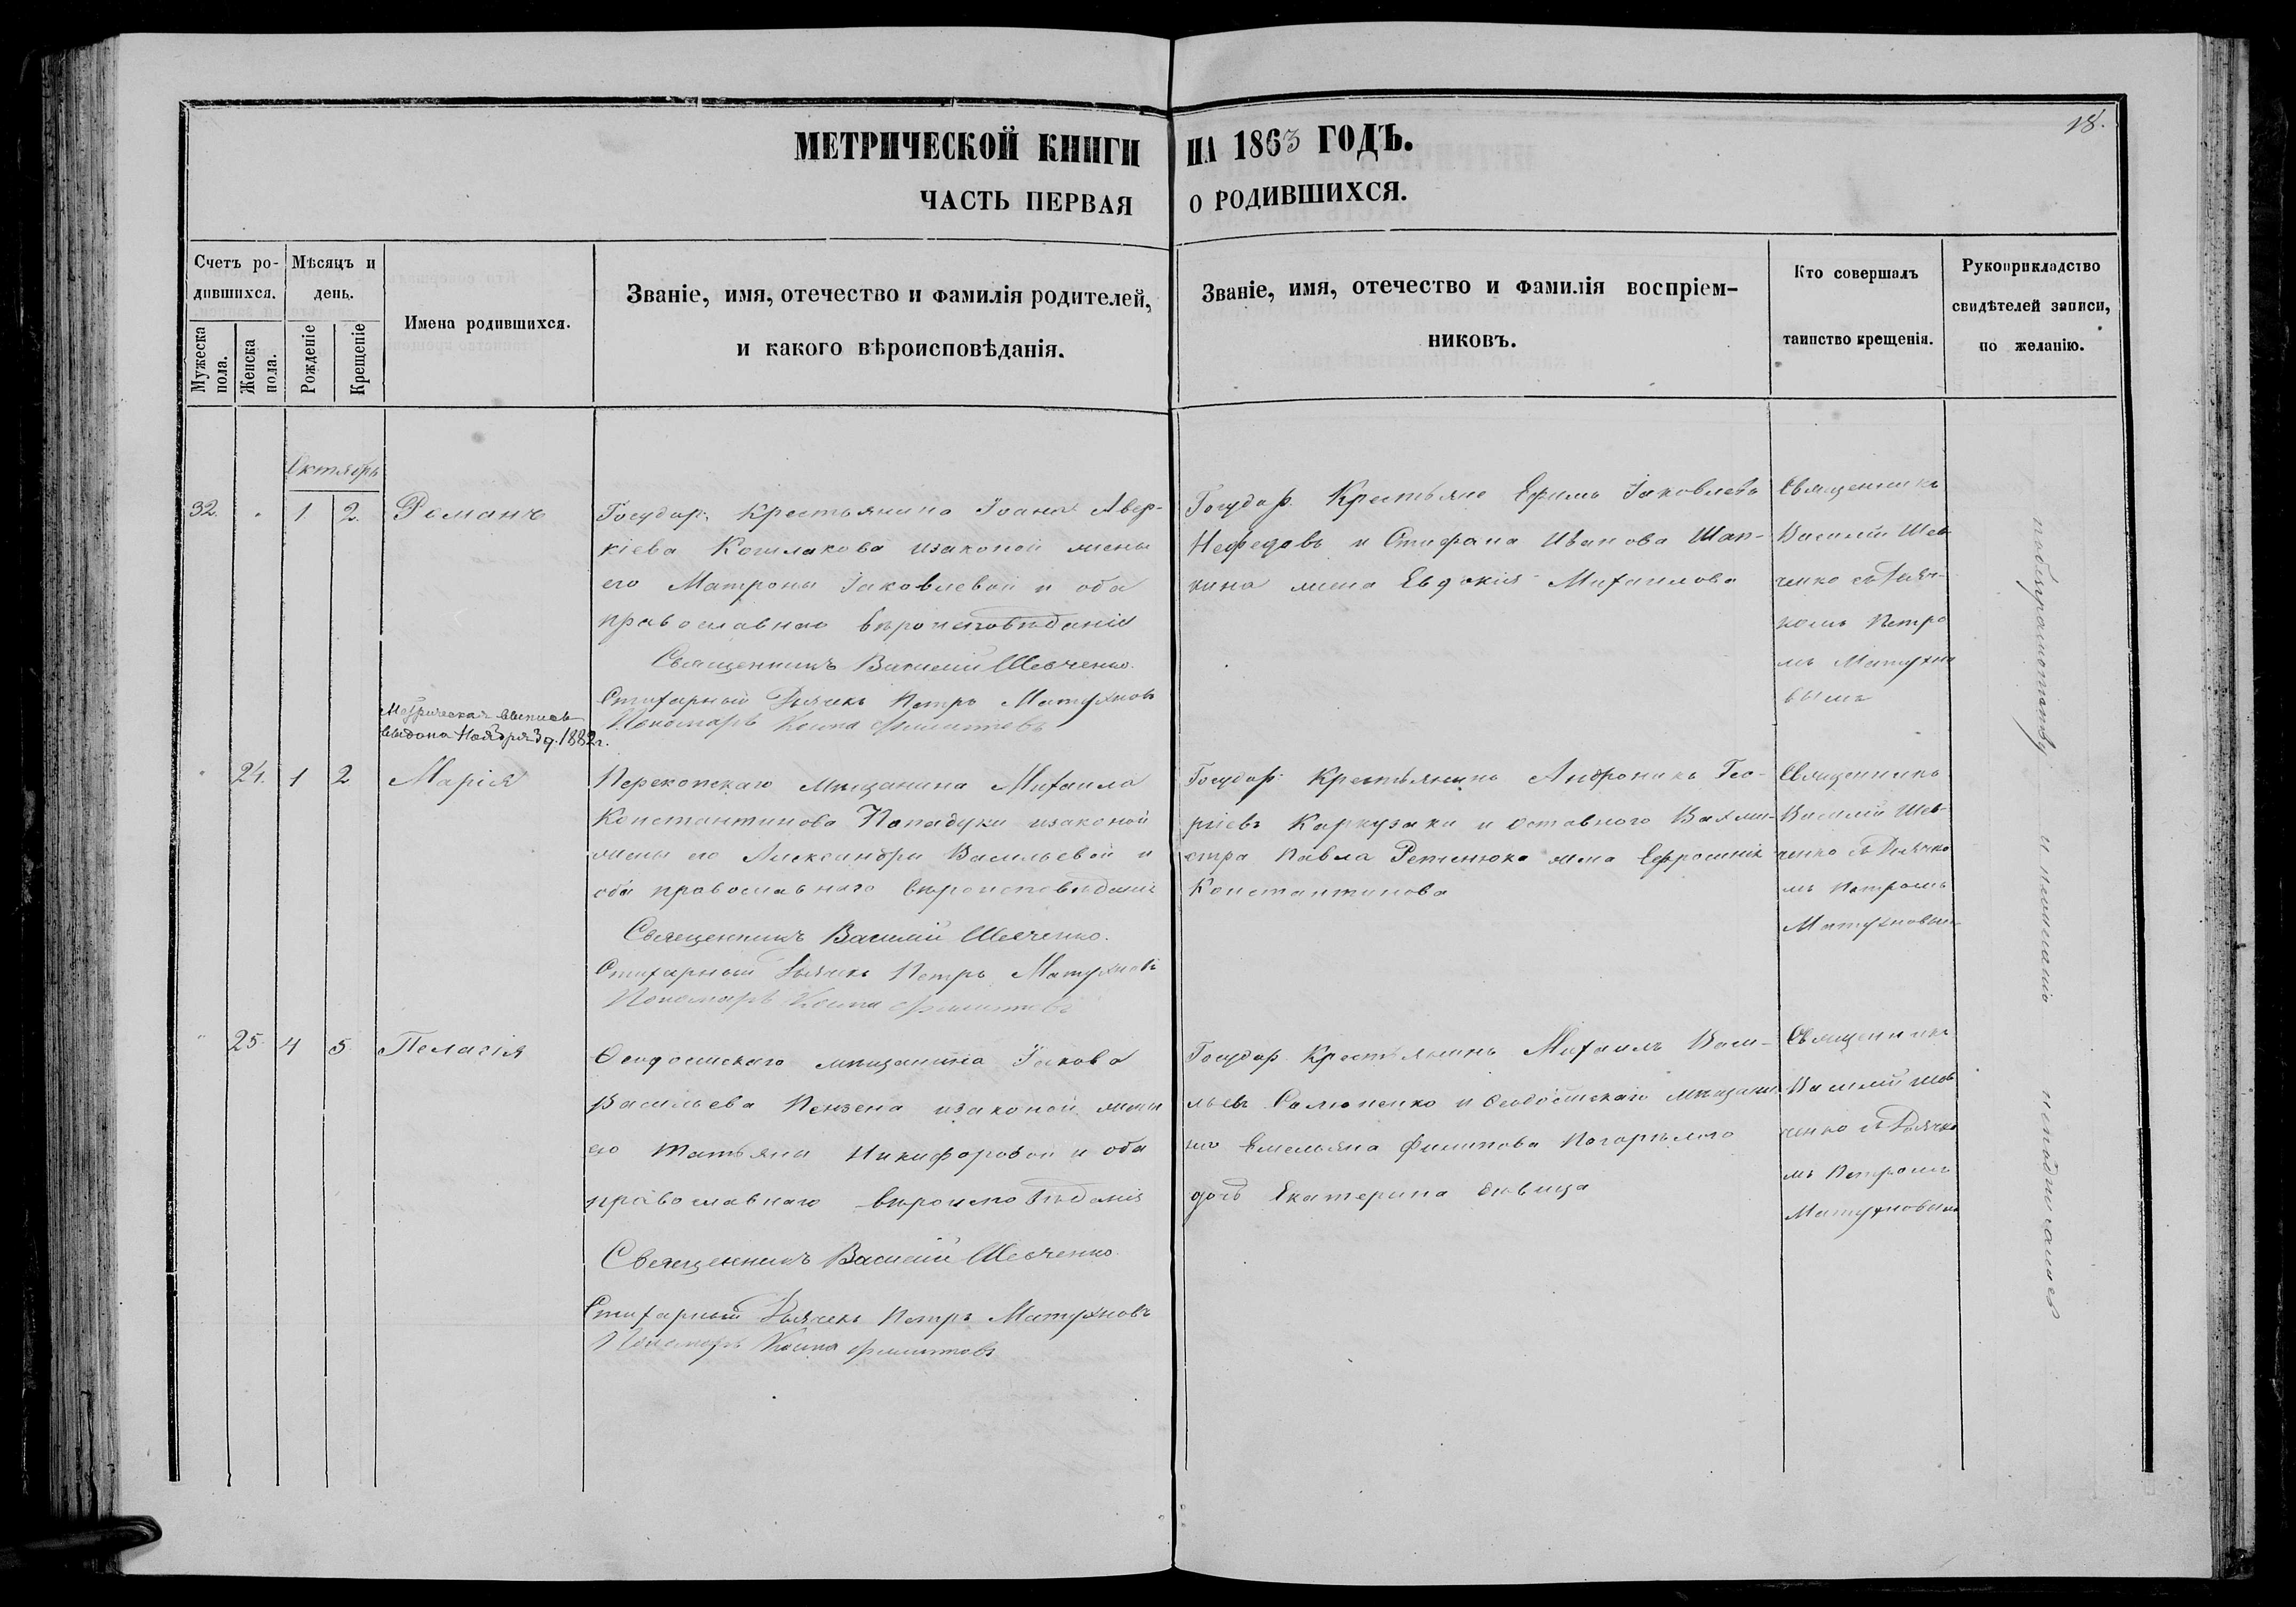 18.
МЕТРИЧЕСКОЙ КНИГИ НА 1863 ГОДЪ.
ЧАСТЬ ПЕРВАЯ О РОДИВШИХСЯ.
Счетъ ро-
дившихся.
Мужеска пола.
Женска пола.
Мѣсяцъ и
день.
Рожденіе
Крещеніе
Имена родившихся.
Званіе, имя, отечество и фамилія родителей,
и какого вѣроисповѣданія.
Званіе, имя, отечество и фамилія воспріем-
никовъ.
Кто совершалъ
таинство крещенія.
Рукоприкладство
свидѣтелей записи,
по желанію.
Октябрь
32.
1
2.
Романъ
Государ: Крестьянина Іоана Авер-
кіева Кошлакова изаконой жены
его Матроны Іаковлевой и оба
православнаго вѣроисповѣданія
Священникъ Василій Шевченко.
Стихарный Дьячекъ Петръ Матухновъ
Пономарь Косма Филиповъ
Государ. Крестьяне Ефимъ Іаковлевъ
Нефедовъ и Стефана Иванова Шап-
кина жена Евдокія Михаилова
Священникъ
Василій Шев
ченко съ Дьяч-
комъ Петро
мъ Матухно
вымъ
Метрическая выпись
выдана Ноября 3 д. 1882 г.
24.
1
2
Марія
Перекопскаго мѣщанина Михаила
Константинова Пападуки изаконой
жены его Александры Васильевой и
оба православнаго вѣроисповѣданія
Священникъ Василій Шевченко.
Стихарный Дьячекъ Петръ Матухновъ
Пономарь Косма Филиповъ
Государ: Крестьянинъ Андроникъ Гео-
ргіевъ Каркузаки и Оставного Вахми-
стра Павла Ретенюка жена Ефросинія
Константинова
Священникъ
Василій Шев-
ченко съ Дьячко
мъ Петромъ
Матухновым
25
4
5
Пелагія
Ѳеодосійскаго мѣщанина Іакова
Васильева Пензена изаконой жены
его Татьяны Никифоровой и оба
православнаго вѣроисповѣданія
Священникъ Василій Шевченко.
Стихарный Дьячекъ Петръ Матухновъ
Пономарь Косма Филиповъ
Государ. Крестьянинъ Михаилъ Васи-
льевъ Салюпенко и Ѳеодосійскаго мѣщани
на Емельяна Филипова Погорѣлого
дочь Екатерина дѣвица
Священникъ
Василій Шев
ченко съ Дьячко
мъ Петромъ
Матухновымъ
побезграмотству и нежеланію неподписались